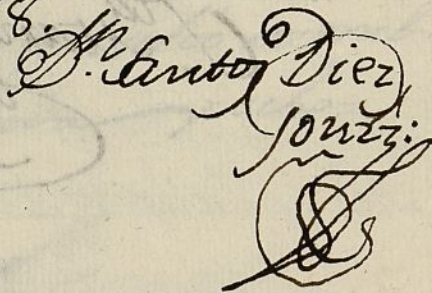 8.
Dn. Santos Diez
Gonzz: